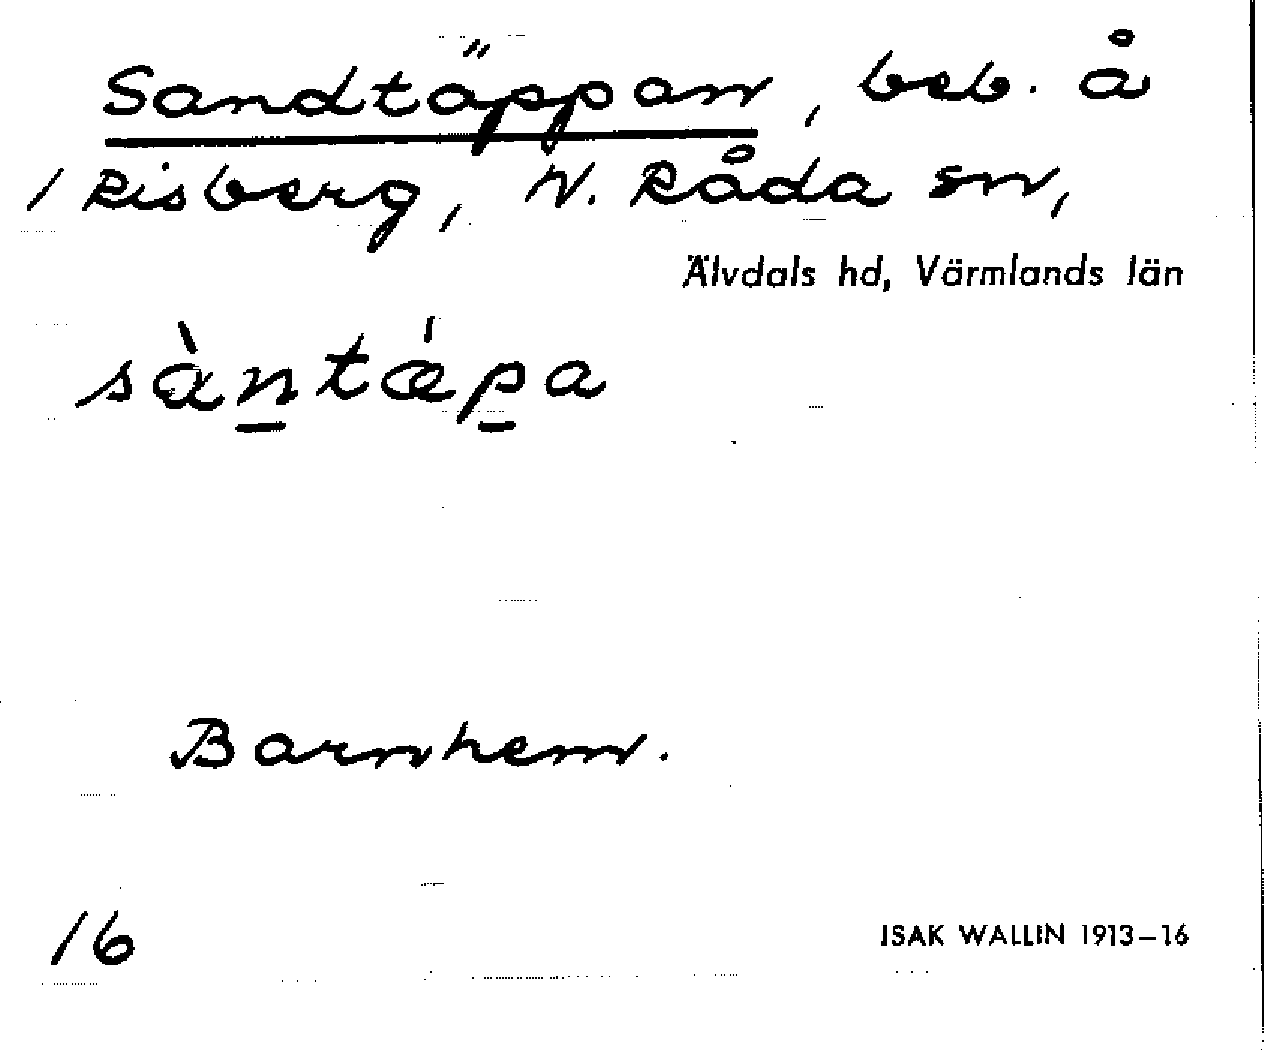 Sandtäppan, beb. å
/ Risberg, N. Råda sn,
Älvdals hd, Värmlands län
sàn̲tǽp̲a
Barnhem.
16
ISAK WALLIN 1913–16